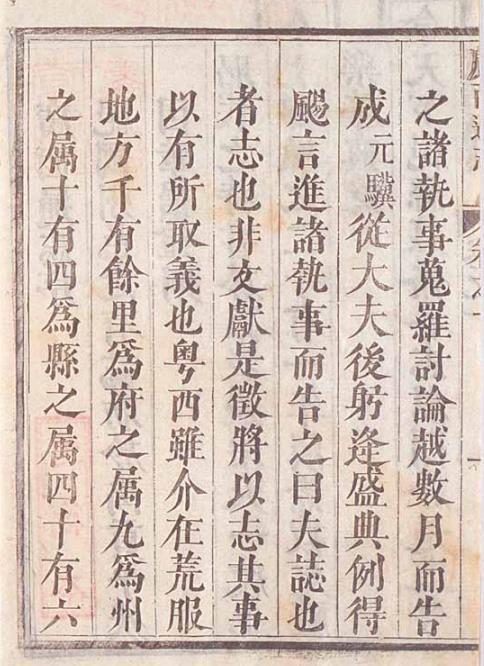 之諸執事蒐羅討論越數月而告
成元驥從大夫後躬逢盛典例得
颺言進諸執事而告之曰夫誌也
者志也非文獻是徵將以志其事
以有所取義也粤西雖介在荒服
地方千有餘里為府之属九為州
之属十有四為縣之属四十有六